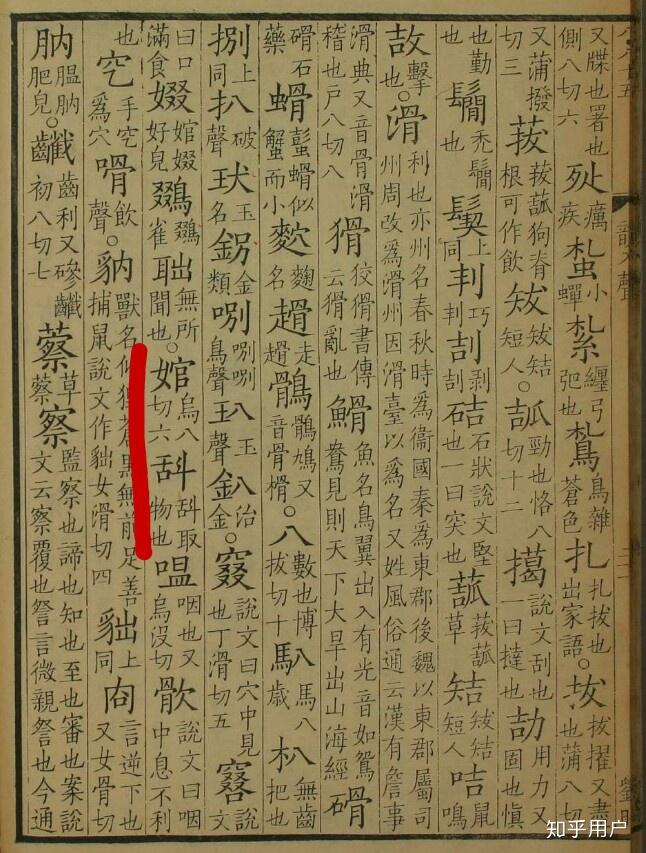 又牒也署也側八切六 𣧑癘疾 蚻小蟬 紮纏弓弝也 鳥雜蒼色 扎扎拔也出家語。拔拔擢又盡也蒲八切
又蒲撥切三 菝菝葀狗脊根可作飲 短人。勁也恪八切十二 擖說文刮也一曰撻也 劼用力又固也慎
也勤也 鬜禿鬜也 上同 㓞巧㓞 刮剥刮也 硈石狀說文堅也一曰突也 葀菝葀草 短人 咭鼠鳴
㪣擊也。滑利也亦州名春秋時爲衞國秦爲東郡後魏以東郡屬司州周改爲滑州因滑臺以爲名又姓風俗通云漢有詹事
滑典又音骨滑稽也戸八切八 猾狡猾書傳云猾亂也 䱻魚名鳥翼出入有光音如鴛鴦見則天下大旱出山海經 磆
磆石藥 螖蟛螖似蟹而小 麧麴名 䠇走䠇 鶻鶻鳩又音骨榾。八數也博拔切十 馬八歳 朳無齒把也
捌上同 扒破聲 玉名 金類 哵哵哵鳥聲 玐玉聲 釟治金。窡說文曰穴中見也丁滑切五 窋說文
曰口滿食 婠婠好皃 鵽鵽雀 聉無所聞也。婠烏八切六 㪁㪁取物也 嗢咽也又烏沒切 說文曰咽中息不利
也 穵手穵爲穴 㗕飲聲。豽獸名似狸蒼黑無前足善捕鼠說文作貀女滑切四 貀上同 㕯言逆下也又女骨切
肭膃肭肥皃。齒利又磣初八切七 蔡草蔡 察監察也諦也知也至也審也案說文云察覆也詧言微親詧也今通
知乎用户